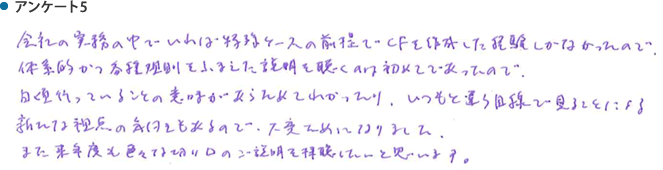 アンケート5
会社の実務の中でいわば特殊ケースの前提でCFを作成した経験しかなかったので、
体系的かつ各種規則をふまえた説明を聴くのは初めてであったので、
日頃行っていることの意味があらためてわかったり、いつもと違う目線で見ることによる
新たな視点の気付きもあるので、大変ためになりました。
また来年度も色々な切り口のご説明を拝聴したいと思います。